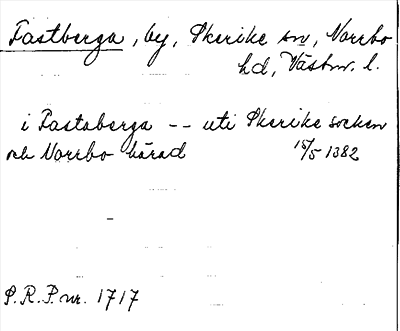 Fastberga, by, Skerike sn, Norrbo
hd, Västm. l.
i Fastaberga -- uti Skerike socken
och Norrbo härad 15/5 1382
P.R.P. nr. 1717